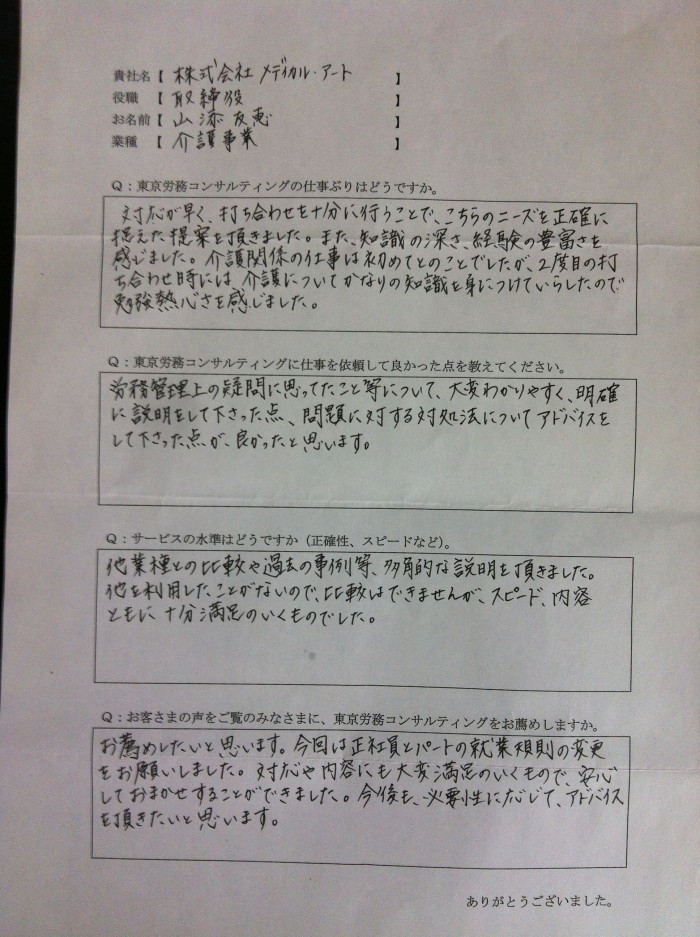 貴社名【 株式会社 メディカル・アート 】
役職 【 取締役 】
お名前【 山添 友恵 】
業種 【 介護事業 】
Q：東京労務コンサルティングの仕事ぶりはどうですか。
対応が早く、打ち合わせを十分に行うことで、こちらのニーズを正確に
捉えた提案を頂きました。また、知識の深さ、経験の豊富さを
感じました。介護関係の仕事は初めてとのことでしたが、2度目の打
ち合わせ時には、介護についてかなりの知識を身につけていらしたので
勉強熱心さを感じました。
Q：東京労務コンサルティングに仕事を依頼して良かった点を教えてください。
労務管理上の疑問に思ってたこと等について、大変わかりやすく、明確
に説明をして下さった点、問題に対する対処法についてアドバイスを
して下さった点が、良かったと思います。
Q：サービスの水準はどうですか（正確性、スピードなど）。
他業種との比較や過去の事例等、多角的な説明を頂きました。
他を利用したことがないので、比較はできませんが、スピード、内容
ともに十分満足のいくものでした。
Q：お客さまの声をご覧のみなさまに、東京労務コンサルティングをお薦めしますか。
お薦めしたいと思います。今回は正社員とパートの就業規則の変更
をお願いしました。対応や内容にも大変満足のいくもので、安心
しておまかせすることができました。今後も、必要性に応じて、アドバイス
を頂きたいと思います。
ありがとうございました。